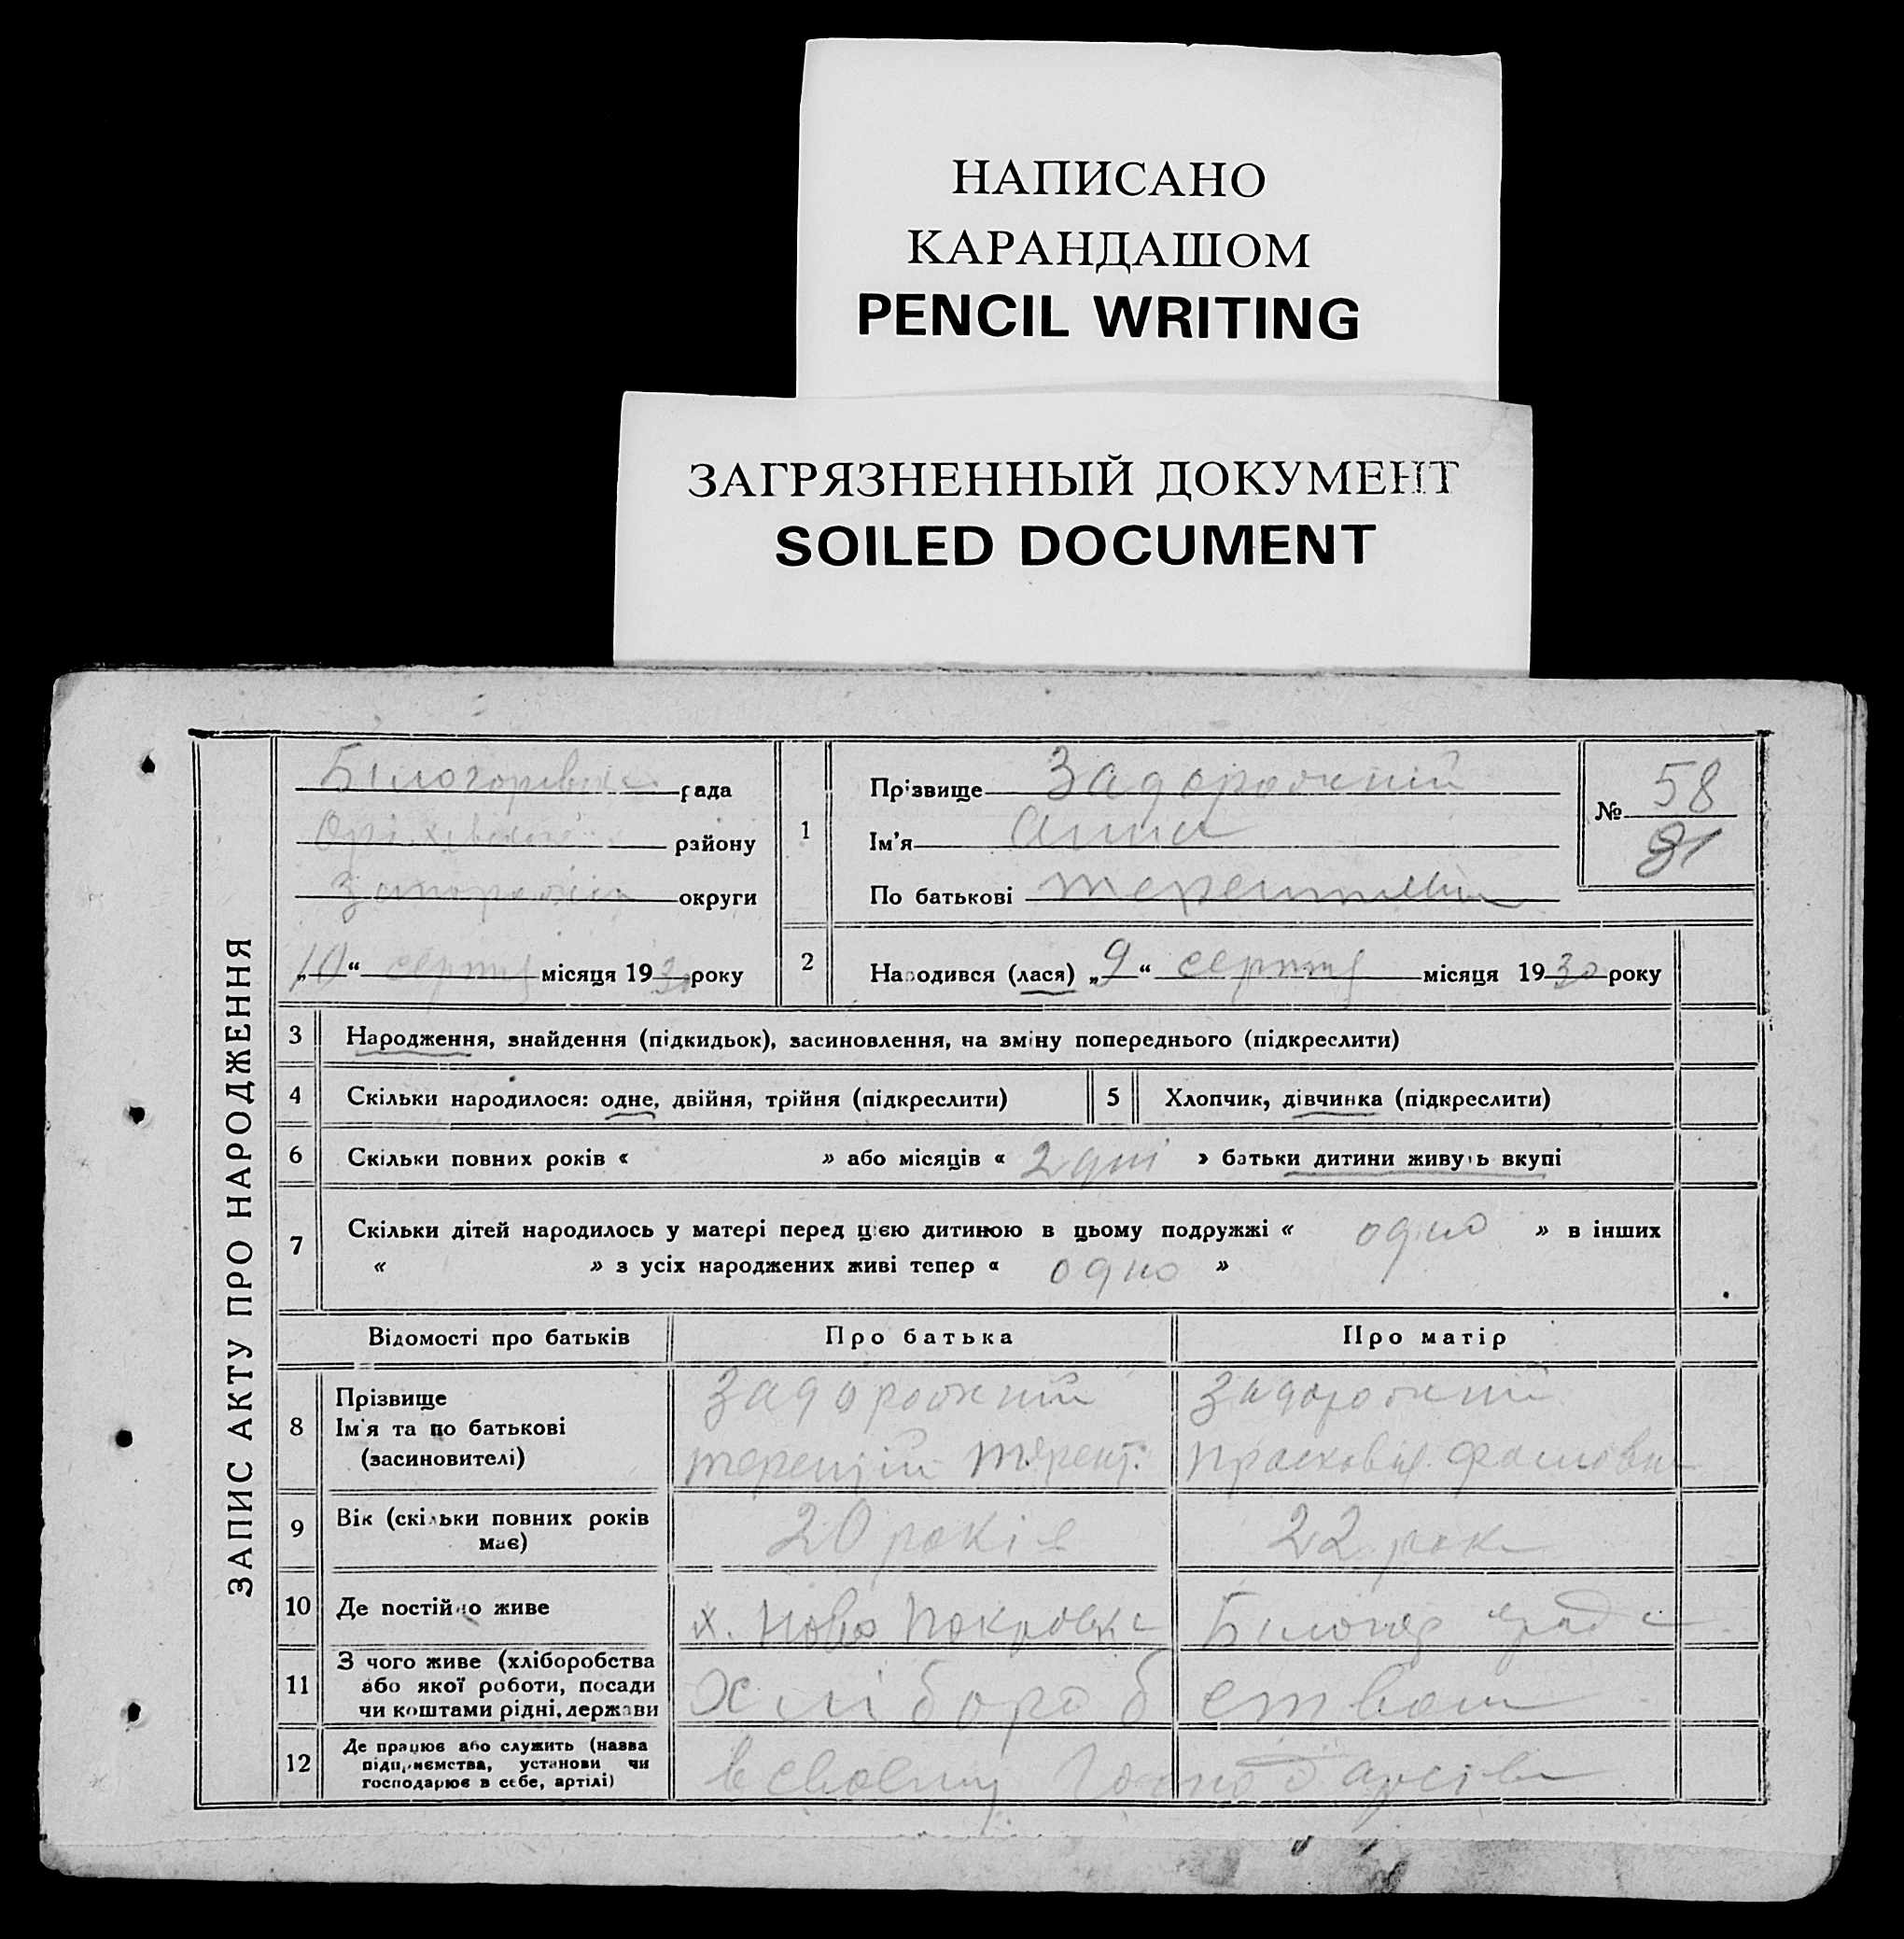 НАПИСАНО
КАРАНДАШОМ
PENCIL WRITING
ЗАГРЯЗНЕННЫЙ ДОКУМЕНТ
SOILED DOCUMENT
ЗАПИС АКТУ ПРО НАРОДЖЕННЯ
рада
району
округи
„10“ серпня місяця 1930 року
1
Прізвище Задорожній
Ім'я Анна
По батькові
№ 58
81
2
Народився (лася) „9“ серпня місяця 1930 року
3 Народження, знайдення (підкидьок), засиновлення, на зміну попереднього (підкреслити)
4 Скільки народилося: одне, двійня, трійня (підкреслити)
5 Хлопчик, дівчинка (підкреслити)
6 Скільки повних років « » або місяців « 2 дні » батьки дитини живуть вкупі
7 Скільки дітей народилось у матері перед цією дитиною в цьому подружжі « одно » в інших
« » з усіх народжених живі тепер « одно »
Відомості про батьків
Про батька
Про матір
8
Прізвище
Ім'я та по батькові
(засновителі)
Задорожний
Терентій Терент.
Задорожний
Прасковія
9
Вік (скільки повних років
має)
20 років
22 рок
10 Де постійно живе
х. Ново Покровка
11
З чого живе (хліборобства
або якої роботи, посади
чи коштами рідні, держави
хліборобством
12
Де працює або служить (назва
підприємства, установи чи
господарює в себе, артілі)
в своєму